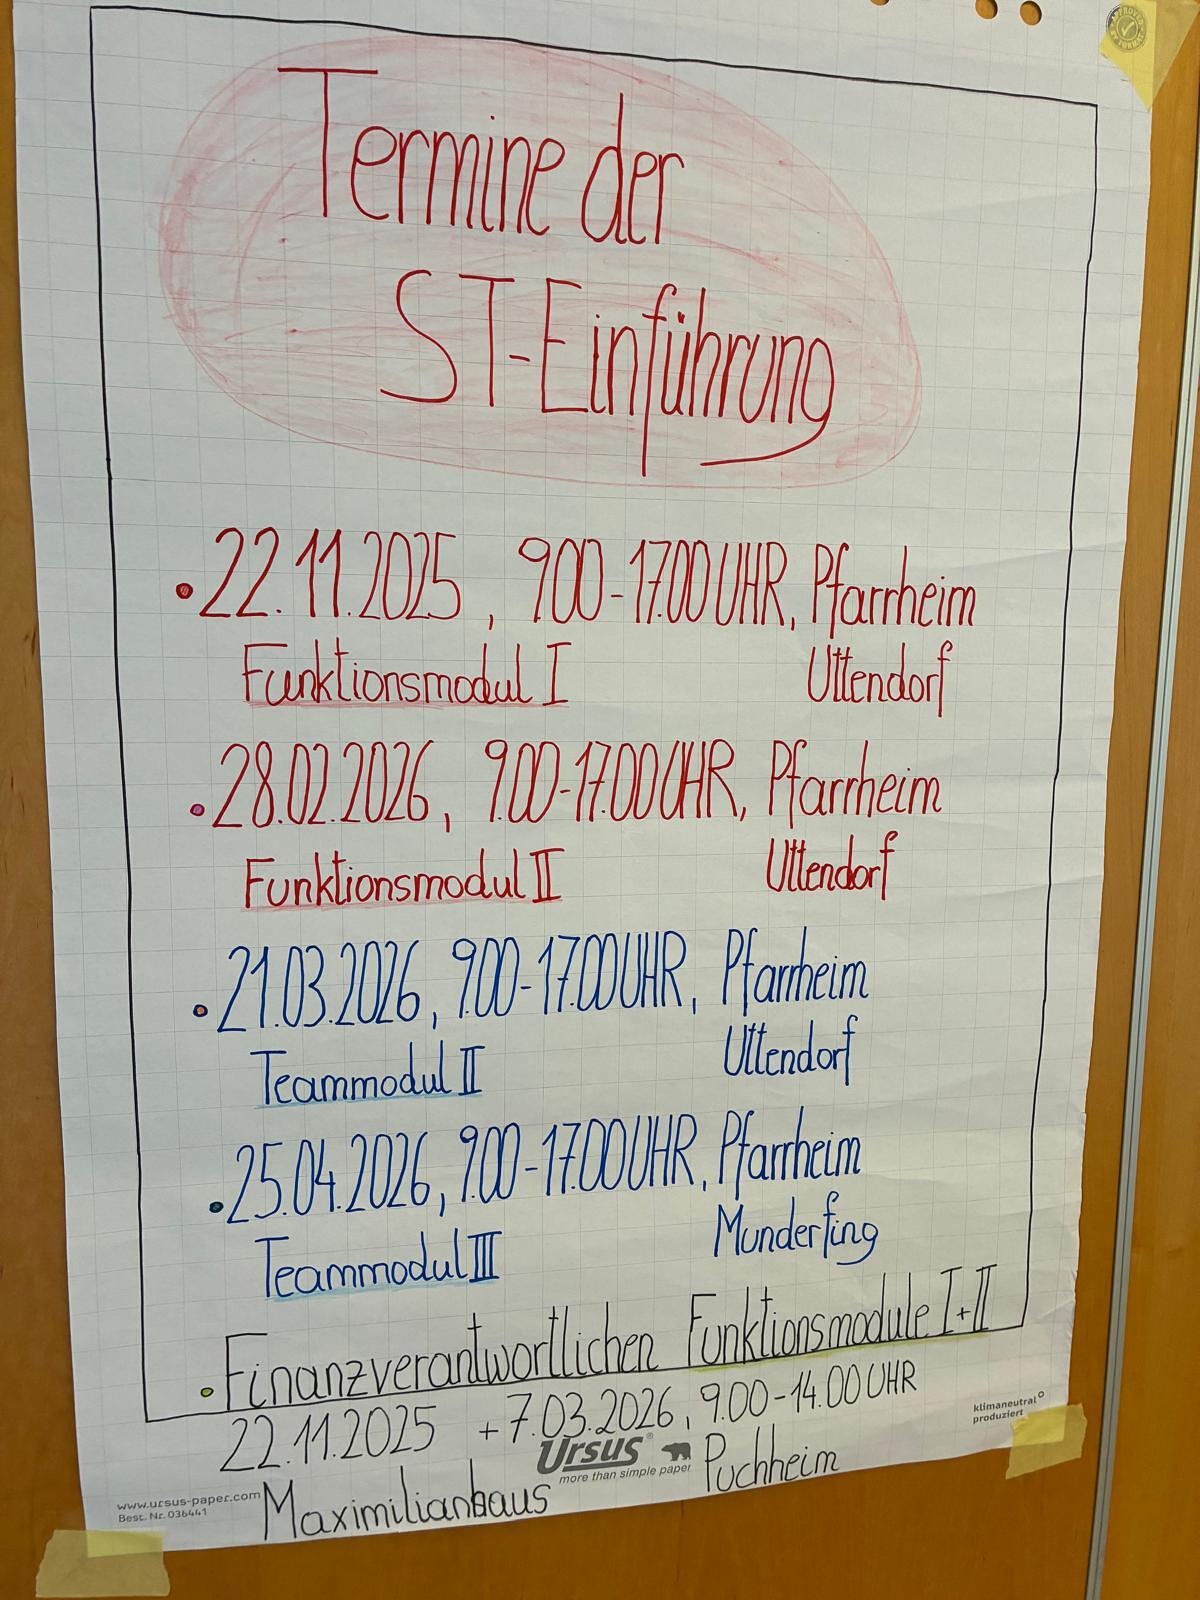 APPROVED BY FORMAT
Termine der
ST-Einführung
• 22.11.2025, 9.00-17.00 UHR, Pfarrheim
Funktionsmodul I Uttendorf
• 28.02.2026, 9.00-17.00 UHR, Pfarrheim
Funktionsmodul II Uttendorf
• 21.03.2026, 9.00-17.00 UHR, Pfarrheim
Teammodul II Uttendorf
• 25.04.2026, 9.00-17.00 UHR, Pfarrheim
Teammodul III Munderfing
• Finanzverantwortlichen Funktionsmodule I+II
22.11.2025 + 7.03.2026, 9.00-14.00 UHR
Maximilianhaus Puchheim
Ursus®
more than simple paper
klimaneutral
produziert
www.ursus-paper.com
Best. Nr. 036441